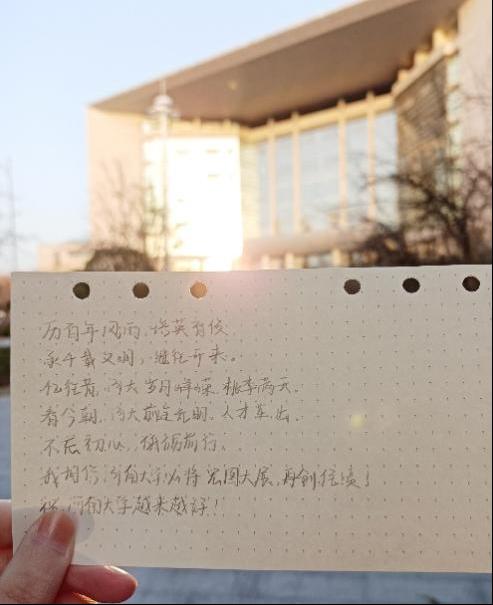 历百年风雨,培英育俊
承千载文明,继往开来。
忆往昔,河大岁月峥嵘,桃李满天.
看今朝,河大前途光明,人才辈出.
不忘初心,砥砺前行.
我相信河南大学必将宏图大展,再创佳绩!
祝河南大学越来越好!